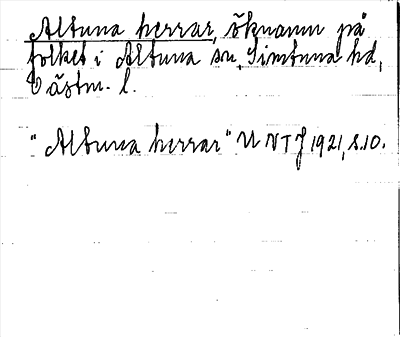 Altuna herrar, öknamn på
folket i Altuna sn, Simtuna hd,
Västm. l.
"Altuna herrar" UNTJ 1921, s.10.